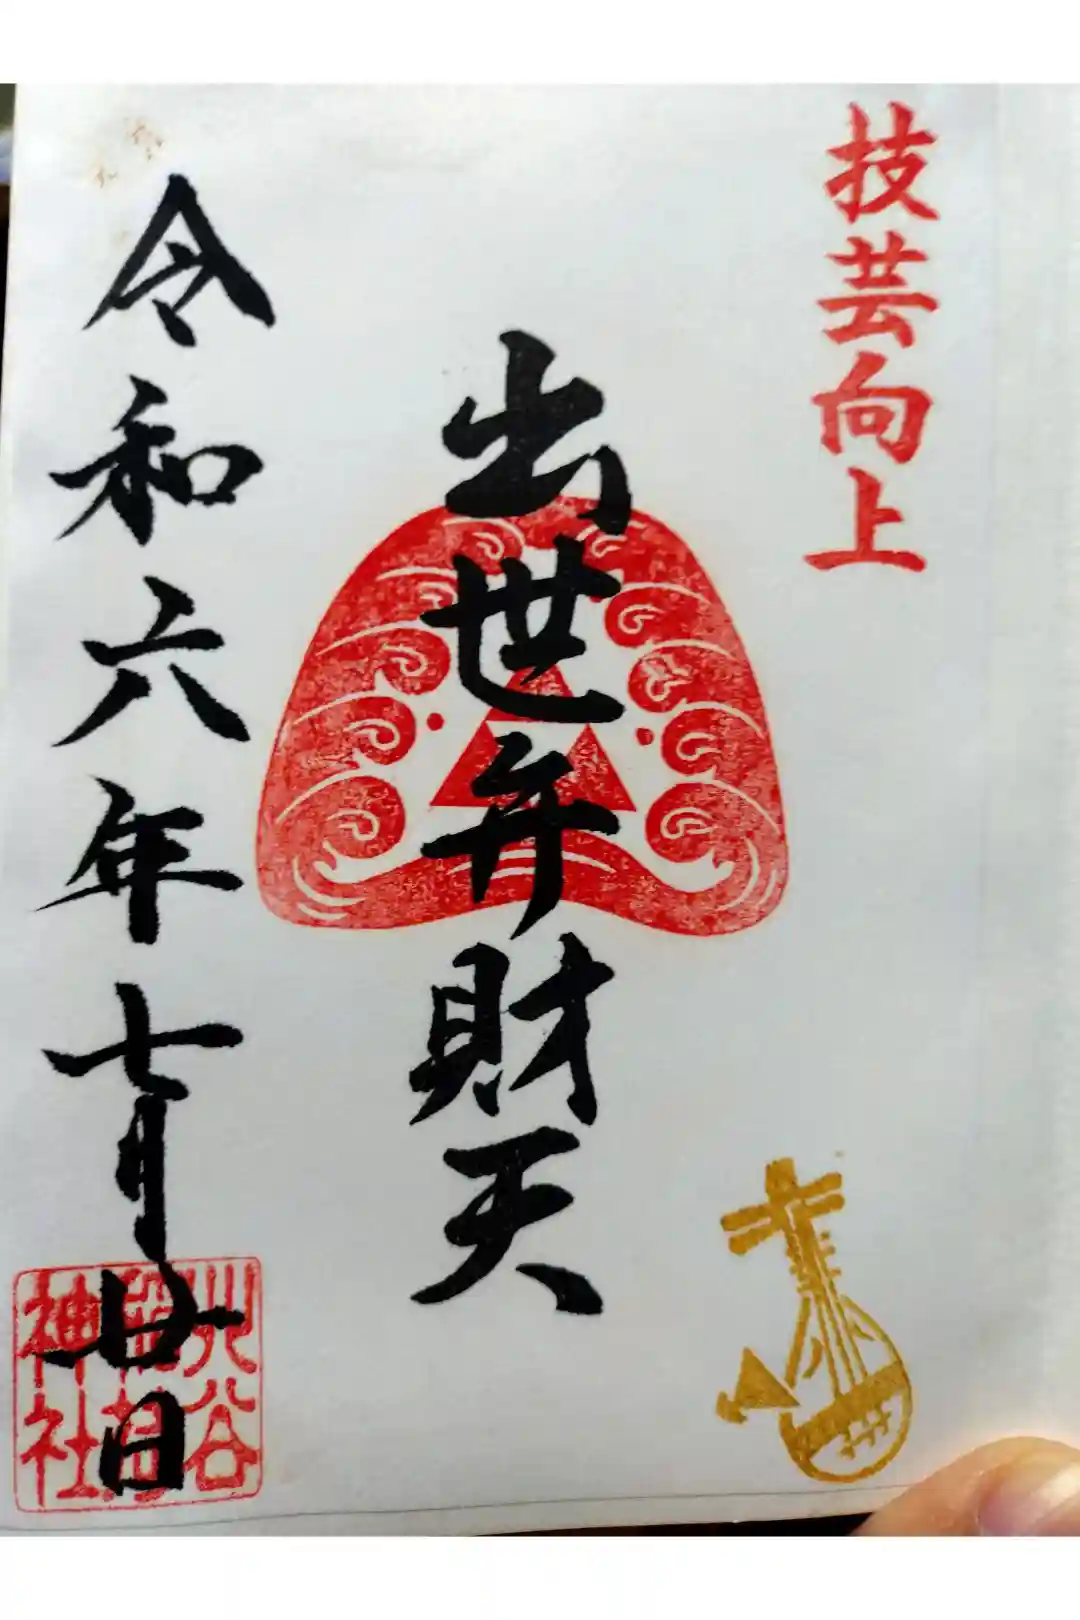 技芸向上
出世弁財天
令和六年七月廿日
神社